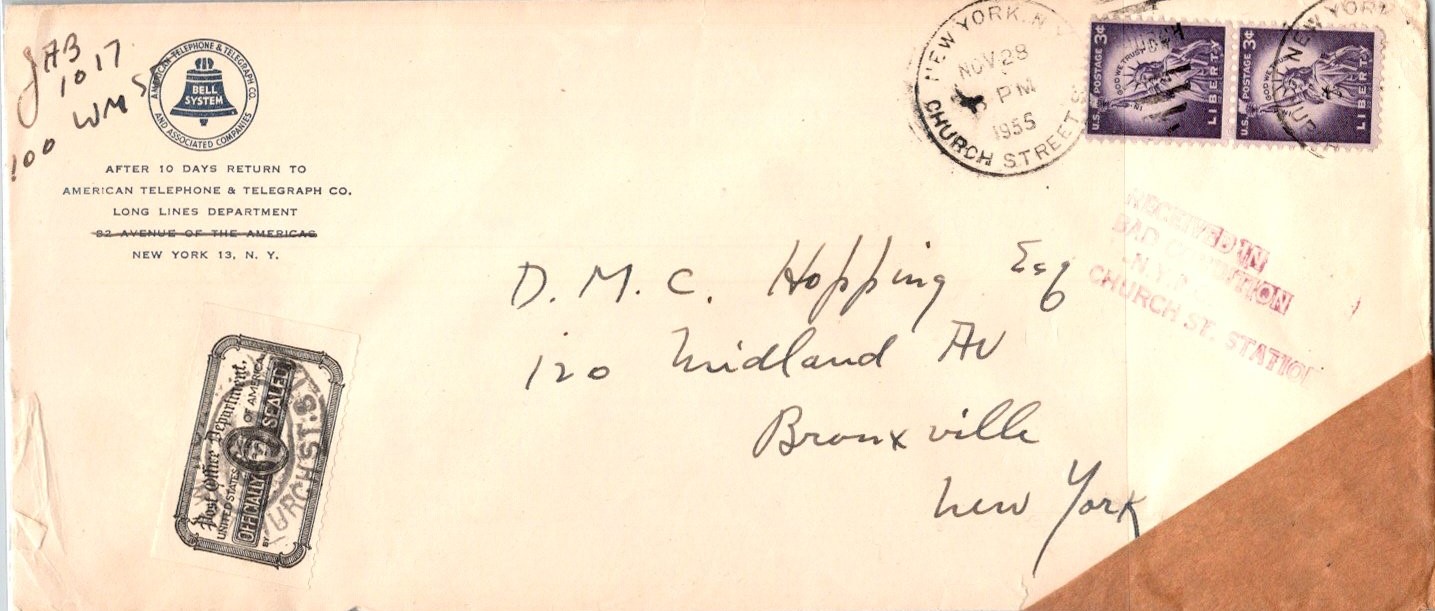 JAB
1017
WMS
100
AMERICAN TELEPHONE & TELEGRAPH CO.
BELL
SYSTEM
AND ASSOCIATED COMPANIES
AFTER 10 DAYS RETURN TO
AMERICAN TELEPHONE & TELEGRAPH CO.
LONG LINES DEPARTMENT
32 AVENUE OF THE AMERICAS
NEW YORK 13, N. Y.
NEW YORK, N.Y.
NOV 28
PM
1955
CHURCH STREET
U.S. POSTAGE 3¢
IN GOD WE TRUST
LIBERTY
U.S. POSTAGE 3¢
IN GOD WE
LIBERTY
NEW YORK
RECEIVED IN
BAD CONDITION
N.Y.
CHURCH ST. STATION
D. M. C. Hopping Esq
120 Midland Av
Bronxville
New York
Post Office Department.
UNITED STATES OF AMERICA
OFFICIALLY SEALED
CHURCH ST.